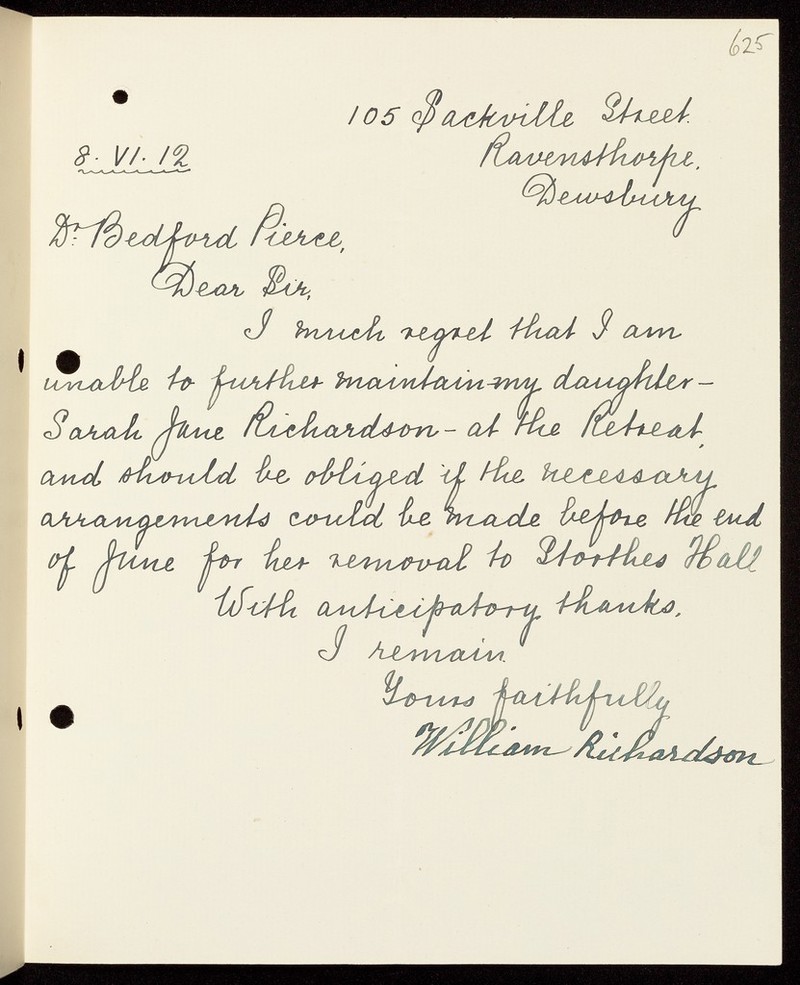 625
105 Sackville Street.
8. VI. 12
Ravensthorpe.
Dewsbury
Dr. Bedford Pierce,
Dear Sir,
I much regret that I am
unable to further maintain my daughter -
Sarah Jane Richardson - at the Retreat,
and should be obliged if the necessary
arrangements could be made before the end
of June for her removal to Storthes Hall
With anticipatory thanks.
I remain
Yours faithfully
William Richardson